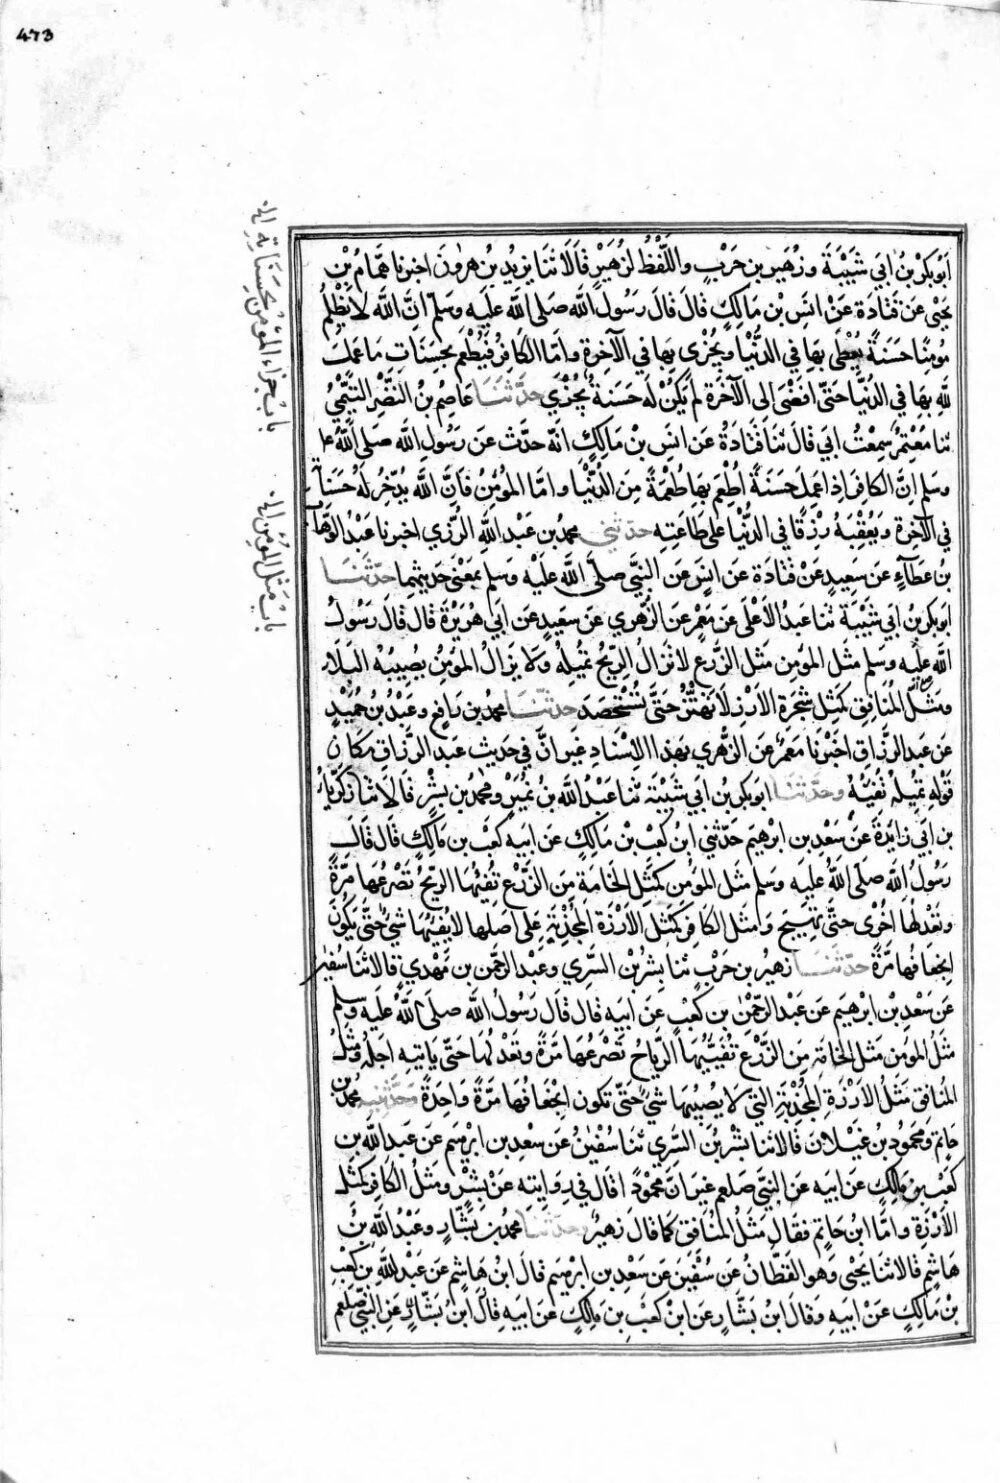 473
باب جزاء المؤمن بحسناته الخ
باب مثل المؤمن الخ
ابو بكر بن ابي شيبة وزهير بن حرب واللفظ لزهير قالا ثنا يزيد بن هرون اخبرنا همام بن
يحيى عن قتادة عن انس بن مالك قال قال رسول الله صلى الله عليه وسلم ان الله لا يظلم
مومنا حسنة يعطى بها في الدنيا ويجزى بها في الآخرة واما الكافر فيطعم بحسنات ما عمل
لله بها في الدنيا حتى افضى الى الآخرة لم تكن له حسنة يجزى حدثنا عاصم بن النضر التيمي
ثنا معتمر سمعت ابي قال ثنا قتادة عن انس بن مالك انه حدث عن رسول الله صلى الله عليه
وسلم ان الكافر اذا عمل حسنة اطعم بها طعمة من الدنيا واما المؤمن فان الله يدخر له حسناته
في الآخرة ويعقبه رزقا في الدنيا على طاعته حدثني محمد بن عبد الله الرزي اخبرنا عبد الوهاب
بن عطآء عن سعيد عن قتادة عن انس عن النبي صلى الله عليه وسلم بمعنى حديثهما حدثنا
ابو بكر بن ابي شيبة ثنا عبد الاعلى عن معمر عن الزهري عن سعيد عن ابي هريرة قال قال رسول
الله عليه وسلم مثل المؤمن مثل الزرع لا تزال الريح تميله ولا يزال المؤمن يصيبه البلاء
ومثل المنافق كمثل شجرة الارز لا تهتز حتى تستحصد حدثنا محمد بن رافع وعبد بن حميد
عن عبد الرزاق اخبرنا معمر عن الزهري بهذا الاسناد غير ان في حديث عبد الرزاق مكان
قوله تميله تفيئه وحدثنا ابو بكر بن ابي شيبة ثنا عبد الله بن نمير ومحمد بن بشر قالا ثنا زكرياء
بن ابي زايدة عن سعد بن ابرهيم حدثني ابن كعب بن مالك عن ابيه كعب بن مالك قال قال
رسول الله صلى الله عليه وسلم مثل المؤمن كمثل الخامة من الزرع تفيئها الريح تصرعها مرة
وتعدلها اخرى حتى تهيج وامثل الكافر كمثل الارزة المجذية على اصلها لا يفيئها شئ حتى يكون
انجعافها مرة حدثنا زهير بن حرب ثنا بشر بن السري وعبد الرحمن بن مهدي قالا ثنا سفين
عن سعد بن ابرهيم عن عبد الرحمن بن كعب عن ابيه قال قال رسول الله صلى الله عليه وسلم
مثل المؤمن مثل الخامة من الزرع تفيئها الرياح تصرعها مرة وتعدلها حتى ياتيه اجله ومثل
المنافق مثل الارزة المجذية التي لا يصيبها شئ حتى تكون انجعافها مرة واحدة وحدثنيه محمد بن
حاتم ومحمود بن غيلان قالا ثنا بشر بن السري ثنا سفين عن سعد بن ابرهيم عن عبد الله بن
كعب بن مالك عن ابيه عن النبي صلعم غير ان محمودا قال في روايته عن بشر ومثل الكافر كمثل
الارزة واما ابن حاتم فقال مثل المنافق كما قال زهير وحدثنا محمد بن بشار وعبد الله بن
هاشم قالا ثنا يحيى وهو القطان عن سفين عن سعد بن ابرهيم قال ابن هاشم عن عبد الله بن كعب
بن مالك عن ابيه وقال ابن بشار عن ابن كعب بن مالك عن ابيه قال ابن بشار عن النبي صلعم